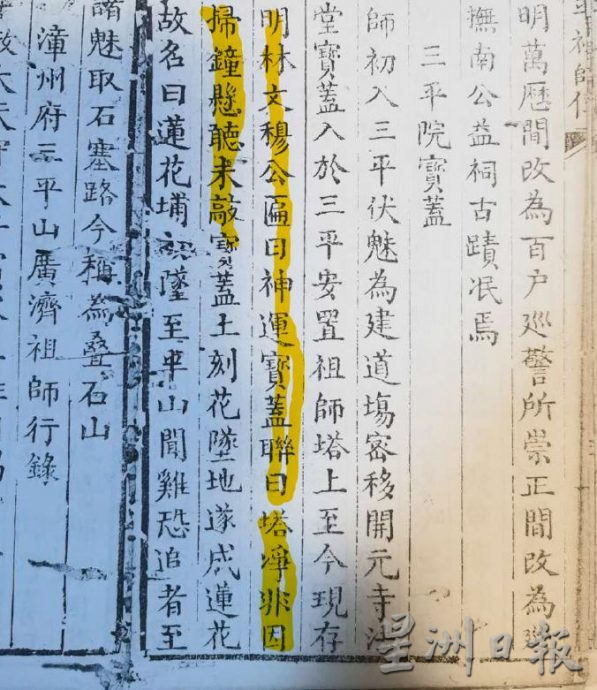 平祖師
明萬歷間改為百戶廵警所崇正間改為
撫南公益祠古蹟泯焉
三平院寶蓋
師初入三平伏魅為建道塲密移開元寺法
堂寶蓋入於三平安置祖師塔上至今現存
明林文穆公匾曰神運寶蓋聯曰塔凈非因
掃鐘懸聽未敲寶蓋上刻花墜地遂成蓮花
故名曰蓮花埔初墜至平山聞雞恐追者至
諸魅取石塞路今稱為叠石山
漳州府三平山廣濟祖師行錄
星洲日報